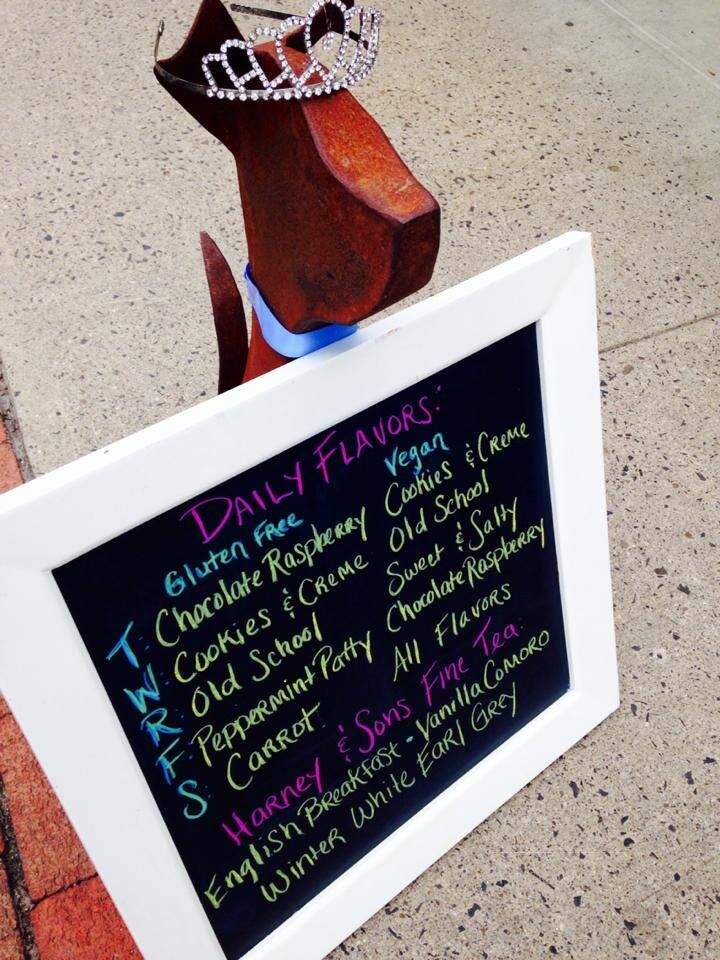 Daily Flavors:
Gluten Free Vegan
T: Chocolate Raspberry Cookies & Creme
W: Cookies & Creme Old School
R: Old School Sweet & Salty
F: Peppermint Patty Chocolate Raspberry
S: Carrot All Flavors
Harney & Sons Fine Tea:
English Breakfast - Vanilla Comoro
Winter White Earl Grey